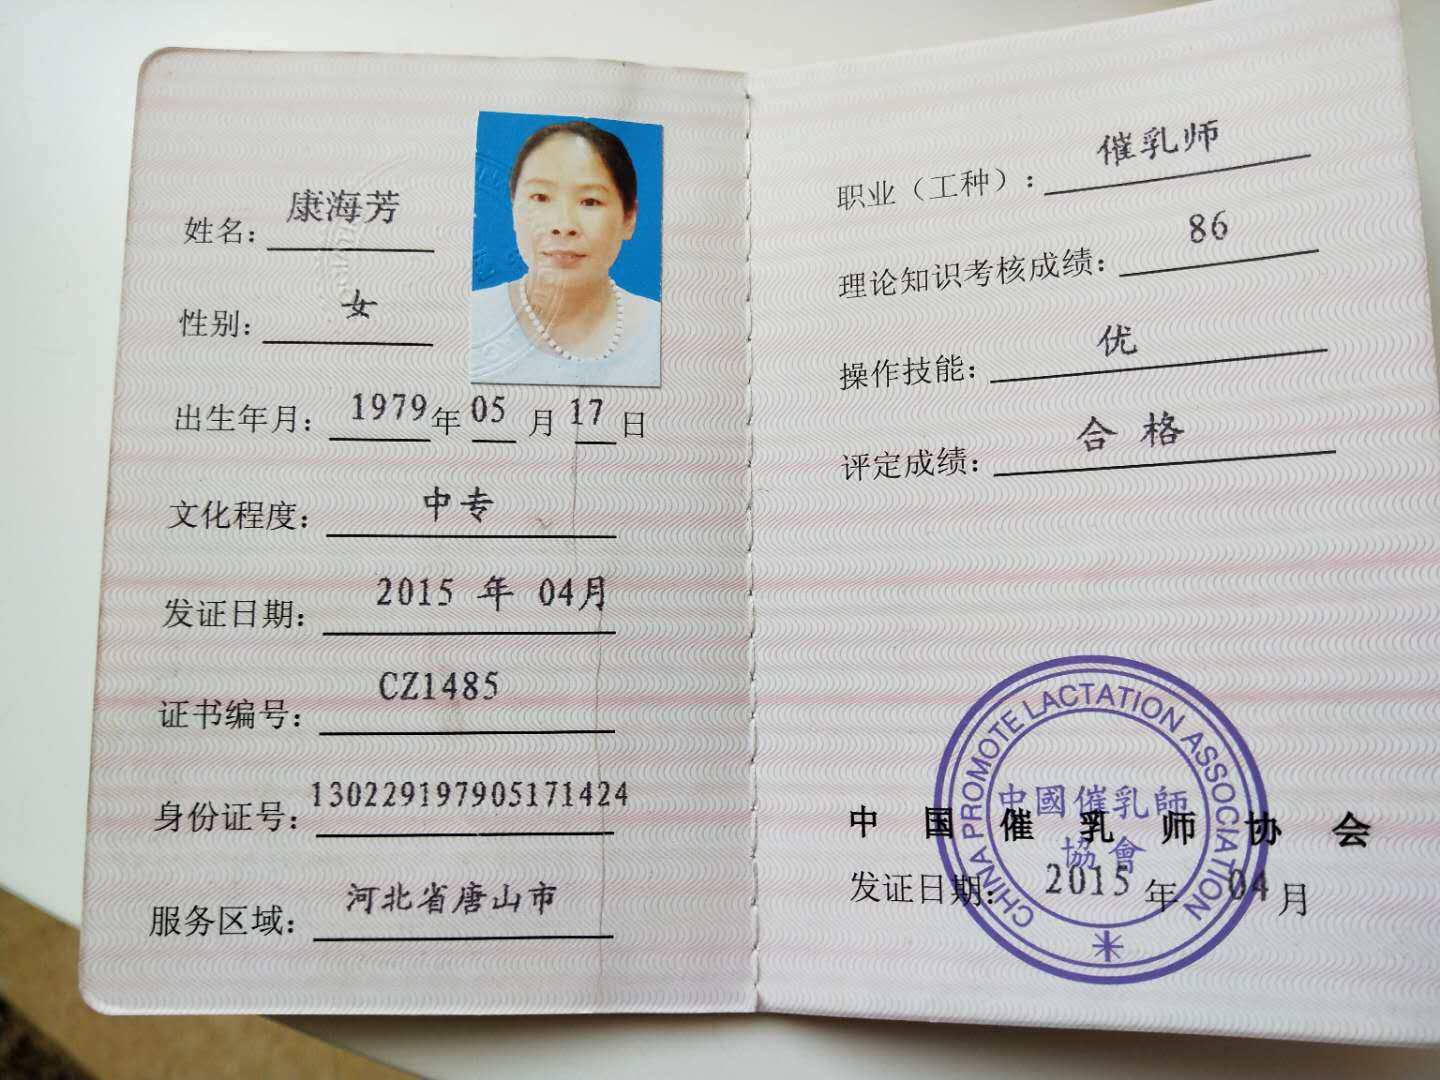 姓名：康海芳
性别：女
出生年月：1979年05月17日
文化程度：中专
发证日期：2015 年 04月
证书编号：CZ1485
身份证号：130229197905171424
服务区域：河北省唐山市
职业（工种）：催乳师
理论知识考核成绩：86
操作技能：优
评定成绩：合格
中国催乳师协会
发证日期：2015年04月
CHINA PROMOTE LACTATION ASSOCIATION
中國催乳師
協會